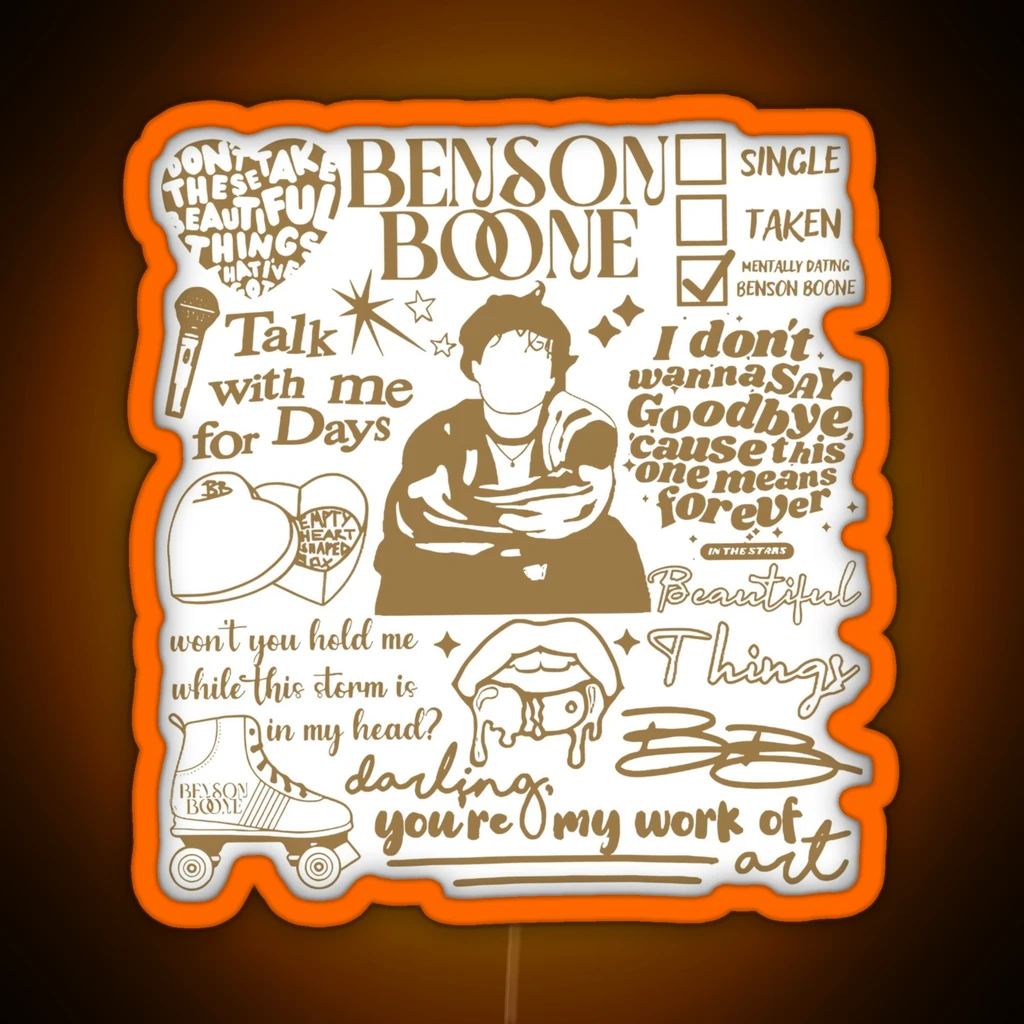 DON'T TAKE
THESE
BEAUTIFUL
THINGS
THAT I'VE
GOT
BENSON
BOONE
SINGLE
TAKEN
MENTALLY DATING
BENSON BOONE
Talk
with me
for Days
I don't
wanna SAY
Goodbye,
'cause this
one means
forever
IN THE STARS
BB
EMPTY
HEART
SHAPED
BOX
Beautiful
Things
BB
won't you hold me
while this storm is
in my head?
BENSON
BOONE
darling,
you're my work of
art